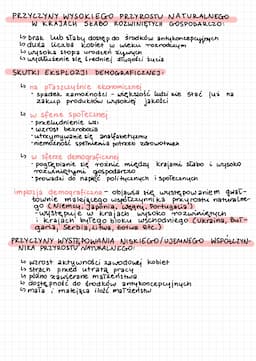 PRZYCZYNY WYSOKIEGO PRZYROSTU NATURALNEGO
W KRAJACH SŁABO ROZWINIĘTYCH GOSPODARCZO:
↳ brak lub słaby dostęp do środków antykoncepcyjnych
↳ duża liczba kobiet w wieku rozrodczym
↳ wysoka stopa urodzeń żywych
↳ wydłużenie się średniej długości życia
SKUTKI EKSPLOZJI DEMOGRAFICZNEJ:
↳ na płaszczyźnie ekonomicznej
- spadek zamożności - większość ludzi nie stać już na
zakup produktów wysokiej jakości
↳ w sferze społecznej
- przeludnienie wsi
- wzrost bezrobocia
- utrzymywanie się analfabetyzmu
- niemożność spełnienia potrzeb zdrowotnych
↳ w sferze demograficznej
- pogłębianie się różnic między krajami słabo i wysoko
rozwiniętymi gospodarczo
- prowadzi do napięć politycznych i społecznych
implozja demograficzna - objawia się występowaniem gwał-
townie malejącego współczynnika przyrostu naturalne-
go (Niemcy, Japonia, Węgry, Portugalia)
- występuje w krajach wysoko rozwiniętych
i krajach byłego bloku wschodniego (Ukraina, Buł-
garia, Serbia, Litwa, Łotwa etc.)
PRZYCZYNY WYSTĘPOWANIA NISKIEGO/UJEMNEGO WSPÓŁCZYN-
NIKA PRZYROSTU NATURALNEGO:
↳ wzrost aktywności zawodowej kobiet
↳ strach przed utratą pracy
↳ późno zawierane małżeństwa
↳ dostępność do środków antykoncepcyjnych
↳ mała i malejąca ilość małżeństw